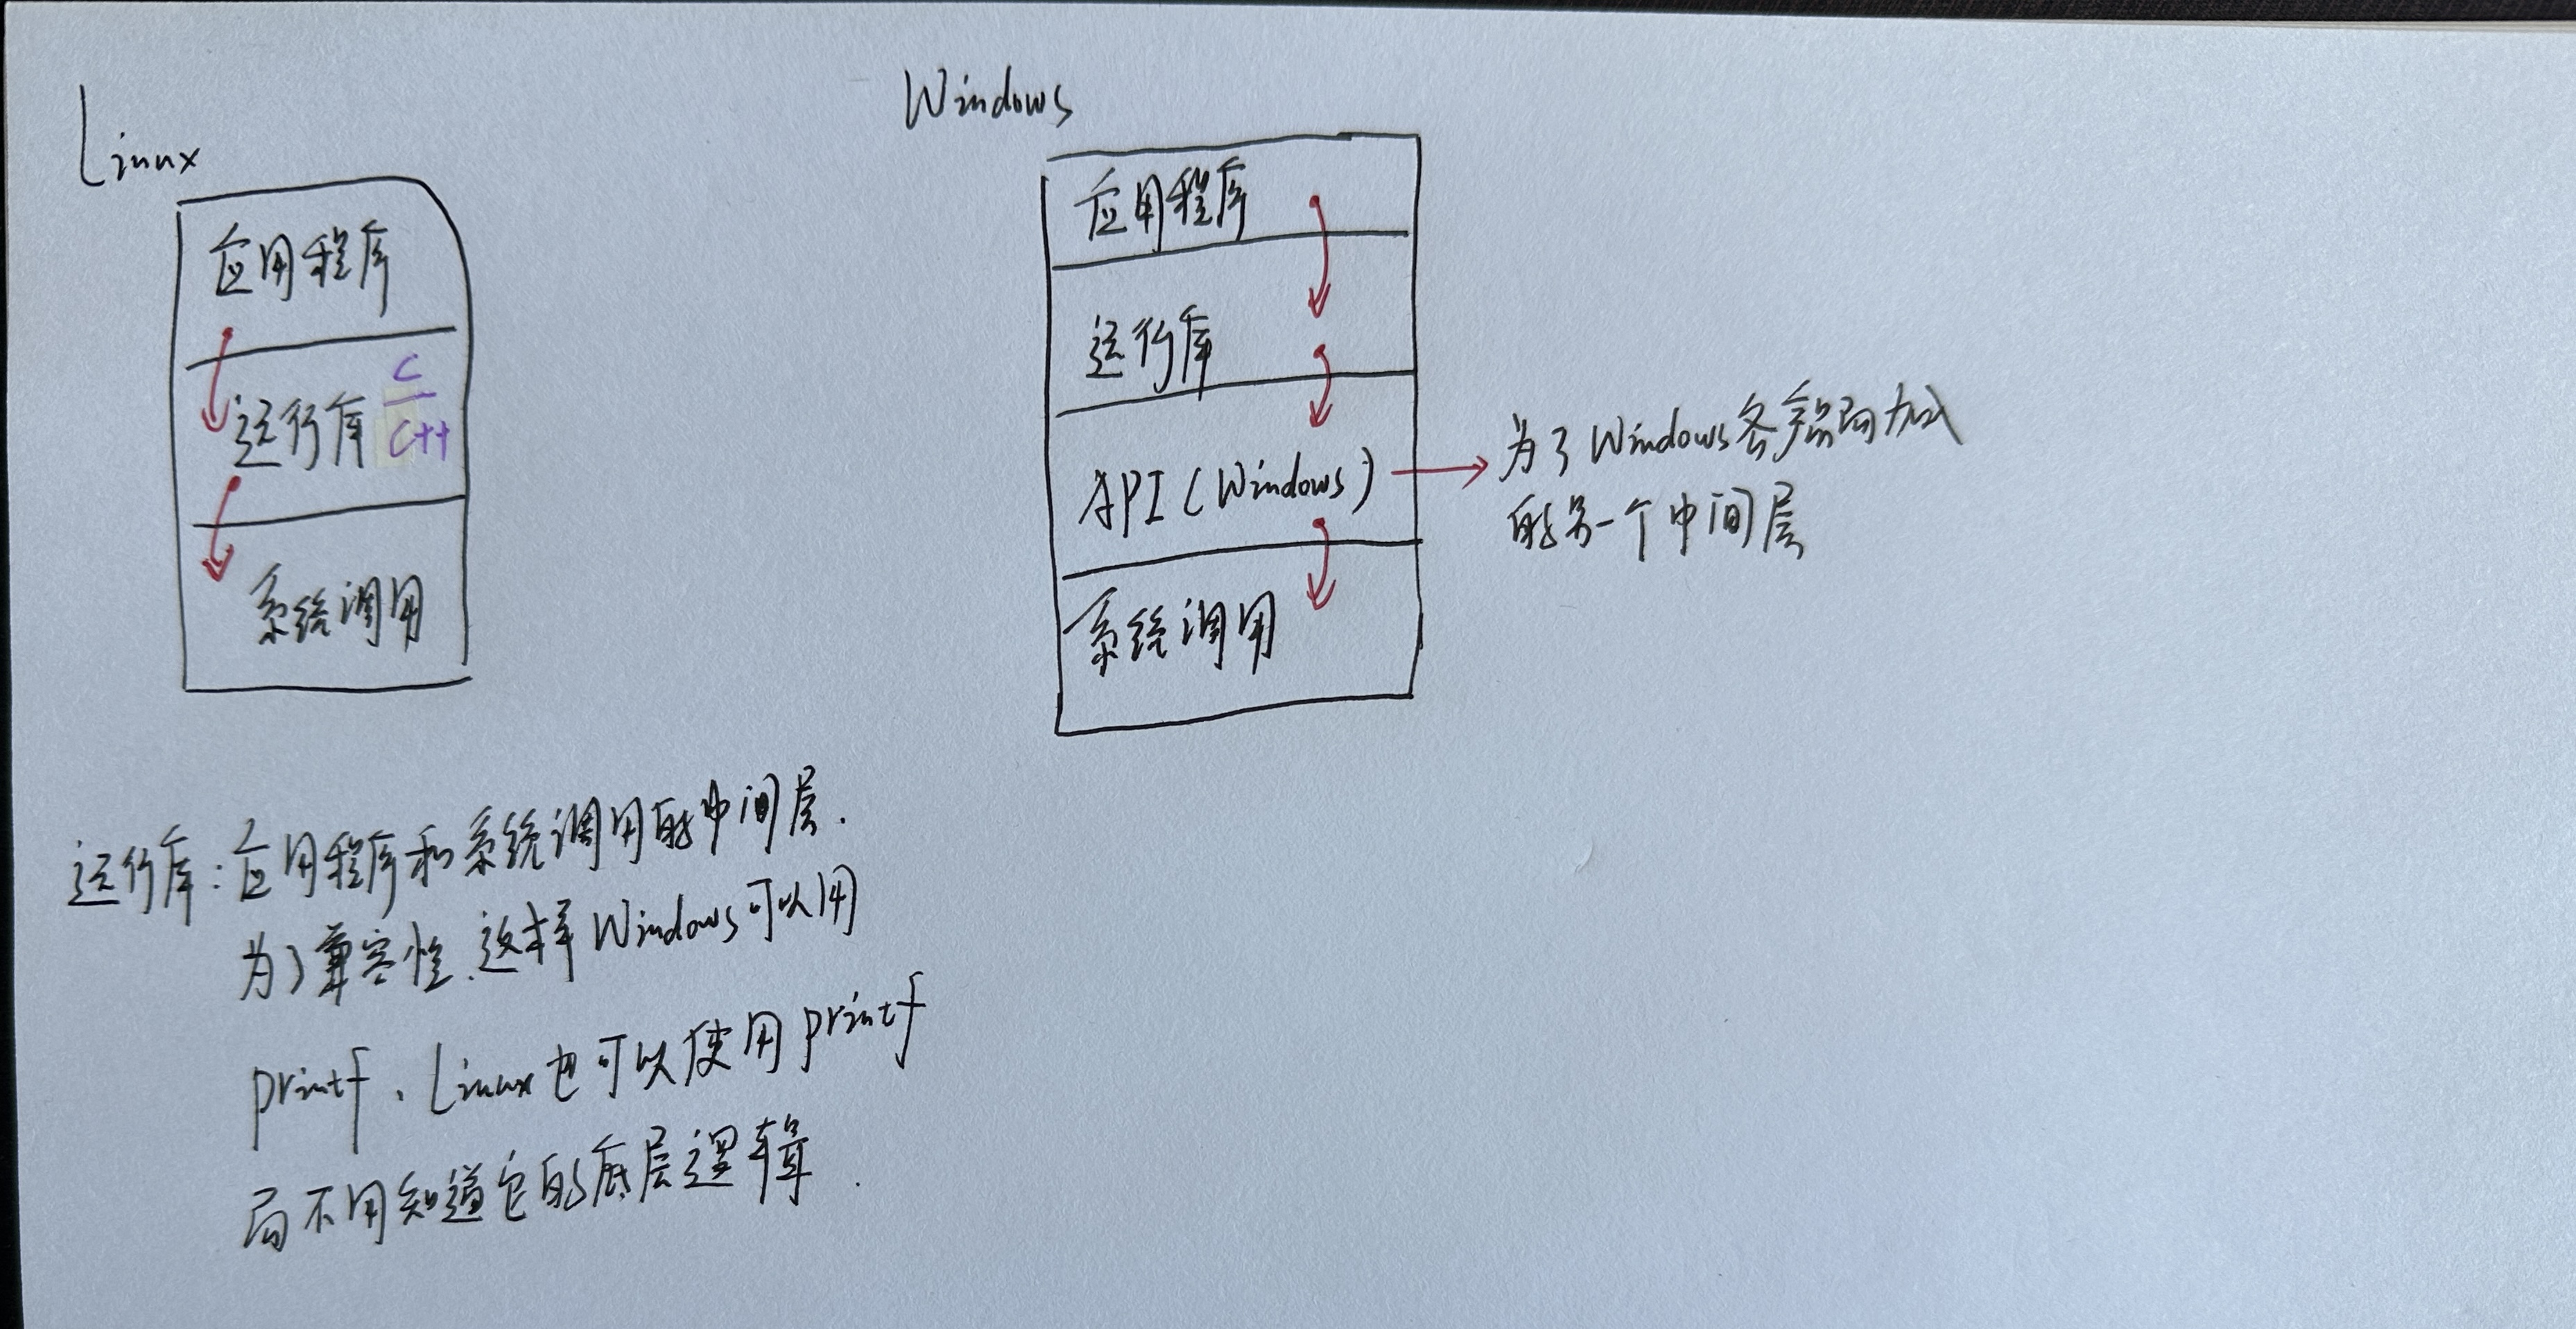 Linux
应用程序
运行库 C
C++
系统调用
Windows
应用程序
运行库
API (Windows)
系统调用
为了Windows各能加
的另一个中间层
运行库:应用程序和系统调用的中间层.
为了兼容性.这样Windows可以用
printf、Linux也可以使用printf
而不用知道它的底层逻辑.